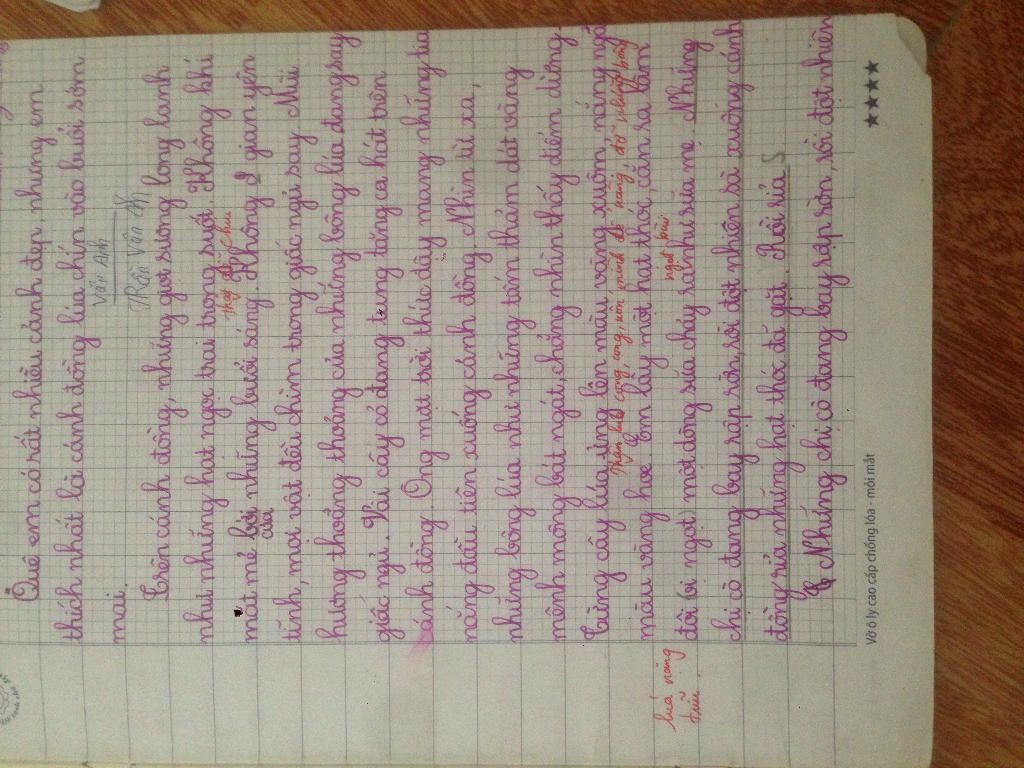 Quê em có rất nhiều cảnh đẹp, nhưng em
thích nhất là cánh đồng lúa chín vào buổi sớm
mai.
Vân Anh
Trần Vân Anh
Trên cánh đồng, những giọt sương long lanh
như những hạt ngọc trai trong suốt. Không khí
thật dễ chịu
mát mẻ bởi những buổi sáng. Không gian yên
của
tĩnh, mọi vật đều chìm trong giấc ngủ say. Mùi
hương thoang thoảng của những bông lúa đang say
giấc ngủ. Vài cây cỏ đang tung tăng ca hát trên
cánh đồng. Ông mặt trời thức dậy mang những tia
nắng đầu tiên xuống cánh đồng. Nhìn từ xa,
những bông lúa như những tấm thảm dát vàng
mênh mông bát ngát, chẳng nhìn thấy điểm dừng
Từng cây lúa dừng lên màu vàng xuộm, nắng ngả
Thân lúa cong cong, uốn mình để nâng đỡ những bông
màu vàng hoe. Em lấy một hạt thóc, cắn ra làm
lúa nặng trĩu.
ngọt bùi
đôi (vị ngọt) một dòng sữa chảy ra như sữa mẹ. Những
chị cò đang bay rập rờn, rồi đột nhiên sà xuống cánh
đồng rỉa những hạt thóc đã gặt. Rồi rỉa S
Những chị cò đang bay rập rờn, rồi đột nhiên
Vở ô ly cao cấp chống lóa - mỏi mắt
★★★★